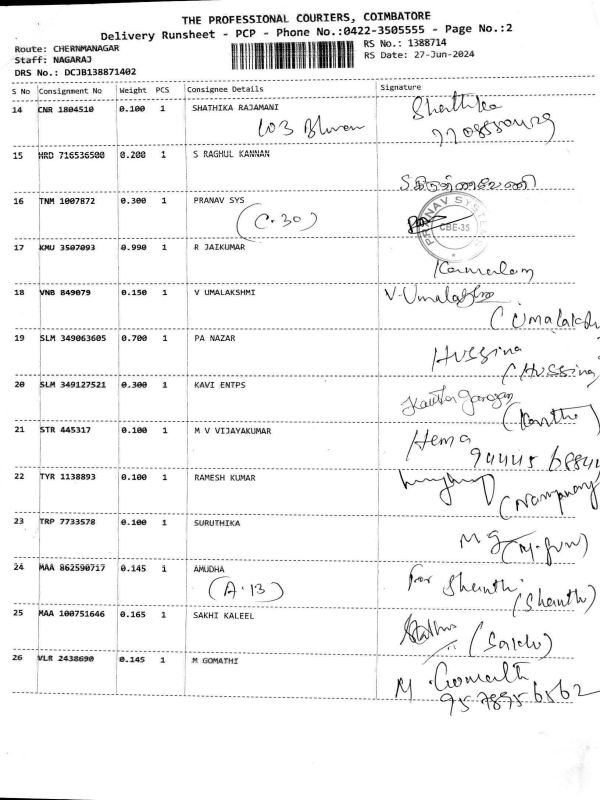 THE PROFESSIONAL COURIERS, COIMBATORE
Delivery Runsheet - PCP - Phone No.:0422-3505555 - Page No.:2
Route: CHERNMANAGAR
RS No.: 1388714
Staff: NAGARAJ
RS Date: 27-Jun-2024
DRS No.: DCJB138871402
S No Consignment No Weight PCS Consignee Details Signature
14 CNR 1804510 0.100 1 SHATHIKA RAJAMANI Shathika
103
15 HRD 716536500 0.200 1 S RAGHUL KANNAN
16 TNM 1007872 0.300 1 PRANAV SYS
(C.30)
PRANAV SYSTEMS
CBE-35
17 KMU 3507093 0.990 1 R JAIKUMAR
Kamalam
18 VNB 849079 0.150 1 V UMALAKSHMI V-Umalakshmi
(Umalaksh
19 SLM 349063605 0.700 1 PA NAZAR Hussina
(Hussina)
20 SLM 349127521 0.300 1 KAVI ENTPS
21 STR 445317 0.100 1 M V VIJAYAKUMAR Hema
22 TYR 1138893 0.100 1 RAMESH KUMAR
23 TRP 7733578 0.100 1 SURUTHIKA
24 MAA 862590717 0.145 1 AMUDHA For Shanthi
(A.13) (Shanthi)
25 MAA 100751646 0.165 1 SAKHI KALEEL
26 VLR 2438690 0.145 1 M GOMATHI
M. Gomathi
9578956562